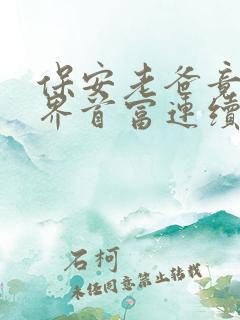 保安老爸竟
界首富连续
石柯
未经同意禁止转载